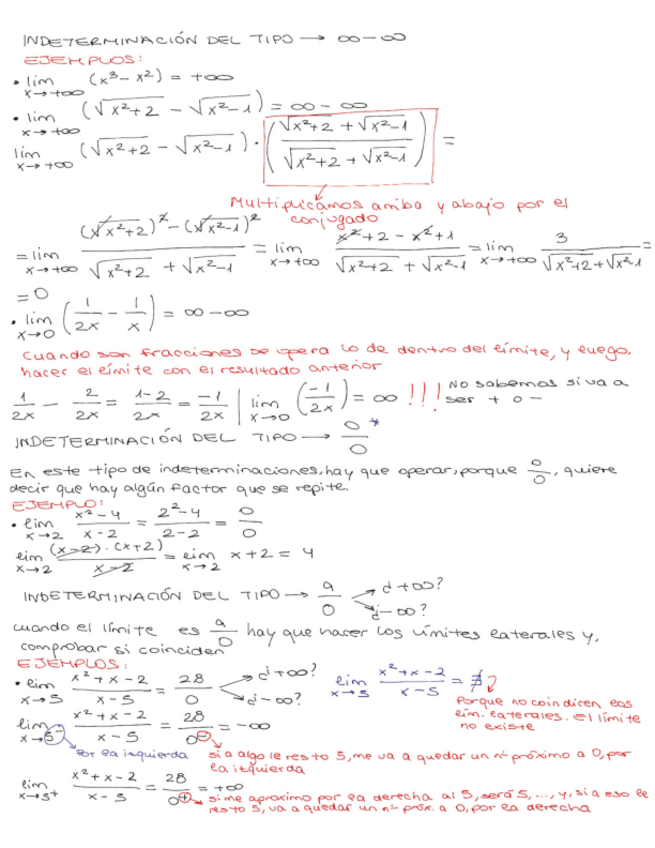 INDETERMINACIÓN DEL TIPO → ∞-∞
EJEMPLOS:
• lim x→+∞ (x³- x²) = +∞
• lim x→+∞ (√x²+2 - √x²-1) = ∞ - ∞
lim x→+∞ (√x²+2 - √x²-1) · (√x²+2 + √x²-1 / √x²+2 + √x²-1) =
Multiplicamos arriba y abajo por el
conjugado
= lim x→+∞ (√x²+2)² - (√x²-1)² / √x²+2 + √x²-1 = lim x→+∞ x²+2 - x²+1 / √x²+2 + √x²-1 = lim x→+∞ 3 / √x²+2 + √x²-1 =
= 0
• lim x→0 (1/2x - 1/x) = ∞-∞
Cuando son fracciones se opera lo de dentro del límite, y luego,
hacer el límite con el resultado anterior
1/2x - 2/2x = 1-2/2x = -1/2x | lim x→0 (-1/2x) = ∞ !!! No sabemos si va a
ser + o -
INDETERMINACIÓN DEL TIPO → 0/0 *
En este tipo de indeterminaciones, hay que operar, porque 0/0, quiere
decir que hay algún factor que se repite.
EJEMPLO:
• lim x→2 x²-4 / x-2 = 2²-4 / 2-2 = 0/0
lim x→2 (x-2)·(x+2) / x-2 = lim x→2 x+2 = 4
INDETERMINACIÓN DEL TIPO → a/0 ¿+∞? ¿-∞?
cuando el límite es a/0 hay que hacer los límites laterales y,
comprobar si coinciden
EJEMPLOS:
• lim x→5 x²+x-2 / x-5 = 28/0 ¿+∞? ¿-∞? lim x→5 x²+x-2 / x-5 = ∄
Porque no coindicen los
lim. laterales. El límite
no existe
lim x→5⁻ x²+x-2 / x-5 = 28/0⁻ = -∞
Por la izquierda
si a algo le resto 5, me va a quedar un nº próximo a 0, por
la izquierda
lim x→5⁺ x²+x-2 / x-5 = 28/0⁺ = +∞
si me aproximo por la derecha al 5, será 5, ..., y, si a eso le
resto 5, va a quedar un nº próx. a 0, por la derecha